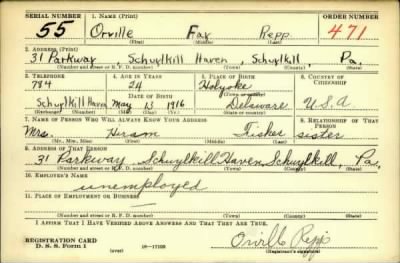 SERIAL NUMBER 1. NAME (Print) ORDER NUMBER
55 Orville Fay Repp 471
(First) (Middle) (Last)
2. ADDRESS (Print)
31 Parkway Schuylkill Haven, Schuylkill, Pa.
(Number and street or R. F. D. number) (Town) (County) (State)
3. TELEPHONE 4. AGE IN YEARS 5. PLACE OF BIRTH 6. COUNTRY OF CITIZENSHIP
784 24 Holyoke
DATE OF BIRTH (Town or county)
Schuylkill Haven May 13 1916 Delaware U.S.A
(Exchange) (Number) (Mo.) (Day) (Yr.) (State or country)
7. NAME OF PERSON WHO WILL ALWAYS KNOW YOUR ADDRESS 8. RELATIONSHIP OF THAT PERSON
Mrs. Hiram Fisher sister
(Mr., Mrs., Miss) (First) (Middle) (Last)
9. ADDRESS OF THAT PERSON
31 Parkway, Schuylkill Haven, Schuylkill, Pa,
(Number and street or R. F. D. number) (Town) (County) (State)
10. EMPLOYER'S NAME
unemployed
11. PLACE OF EMPLOYMENT OR BUSINESS
(Number and street or R. F. D. number) (Town) (County) (State)
I AFFIRM THAT I HAVE VERIFIED ABOVE ANSWERS AND THAT THEY ARE TRUE.
REGISTRATION CARD Orville Repp
D. S. S. Form 1 (over) 16—17105 (Registrant's signature)